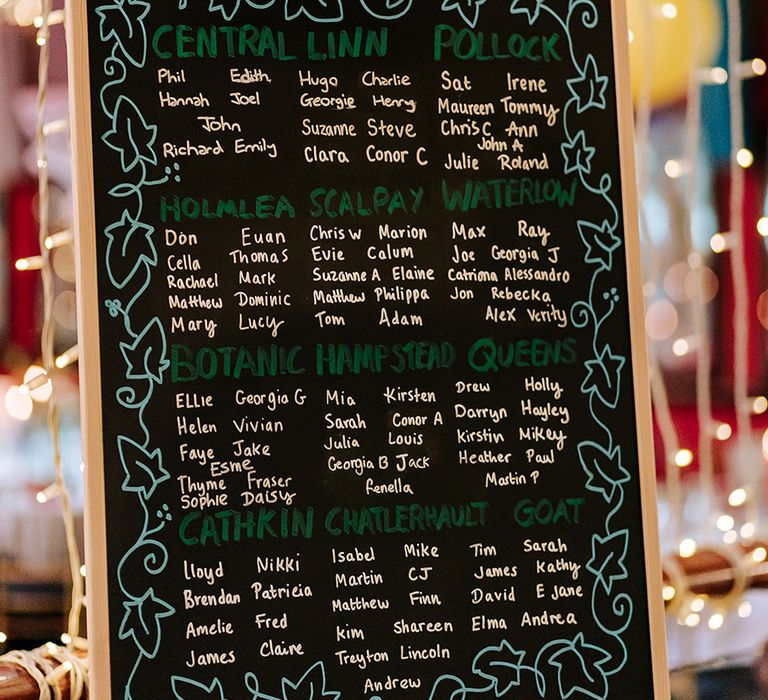 CENTRAL LINN POLLOCK
Phil Edith
Hannah Joel
John
Richard Emily
Hugo Charlie
Georgie Henry
Suzanne Steve
Clara Conor C
Sat Irene
Maureen Tommy
Chris C Ann
John A
Julie Roland
HOLMLEA SCALPAY WATERLOW
Don Euan
Cella Thomas
Rachael Mark
Matthew Dominic
Mary Lucy
Chris W Marion
Evie Calum
Suzanne A Elaine
Matthew Philippa
Tom Adam
Max Ray
Joe Georgia J
Catriona Alessandro
Jon Rebecka
Alex Verity
BOTANIC HAMPSTEAD QUEENS
Ellie Georgia G
Helen Vivian
Faye Jake
Esme
Thyme Fraser
Sophie Daisy
Mia Kirsten
Sarah Conor A
Julia Louis
Georgia B Jack
Fenella
Drew Holly
Darryn Hayley
Kirstin Mikey
Heather Paul
Martin P
CATHKIN CHATLERHAULT GOAT
Lloyd Nikki
Brendan Patricia
Amelie Fred
James Claire
Isabel Mike
Martin CJ
Matthew Finn
Kim Shareen
Treyton Lincoln
Andrew
Tim Sarah
James Kathy
David E Jane
Elma Andrea